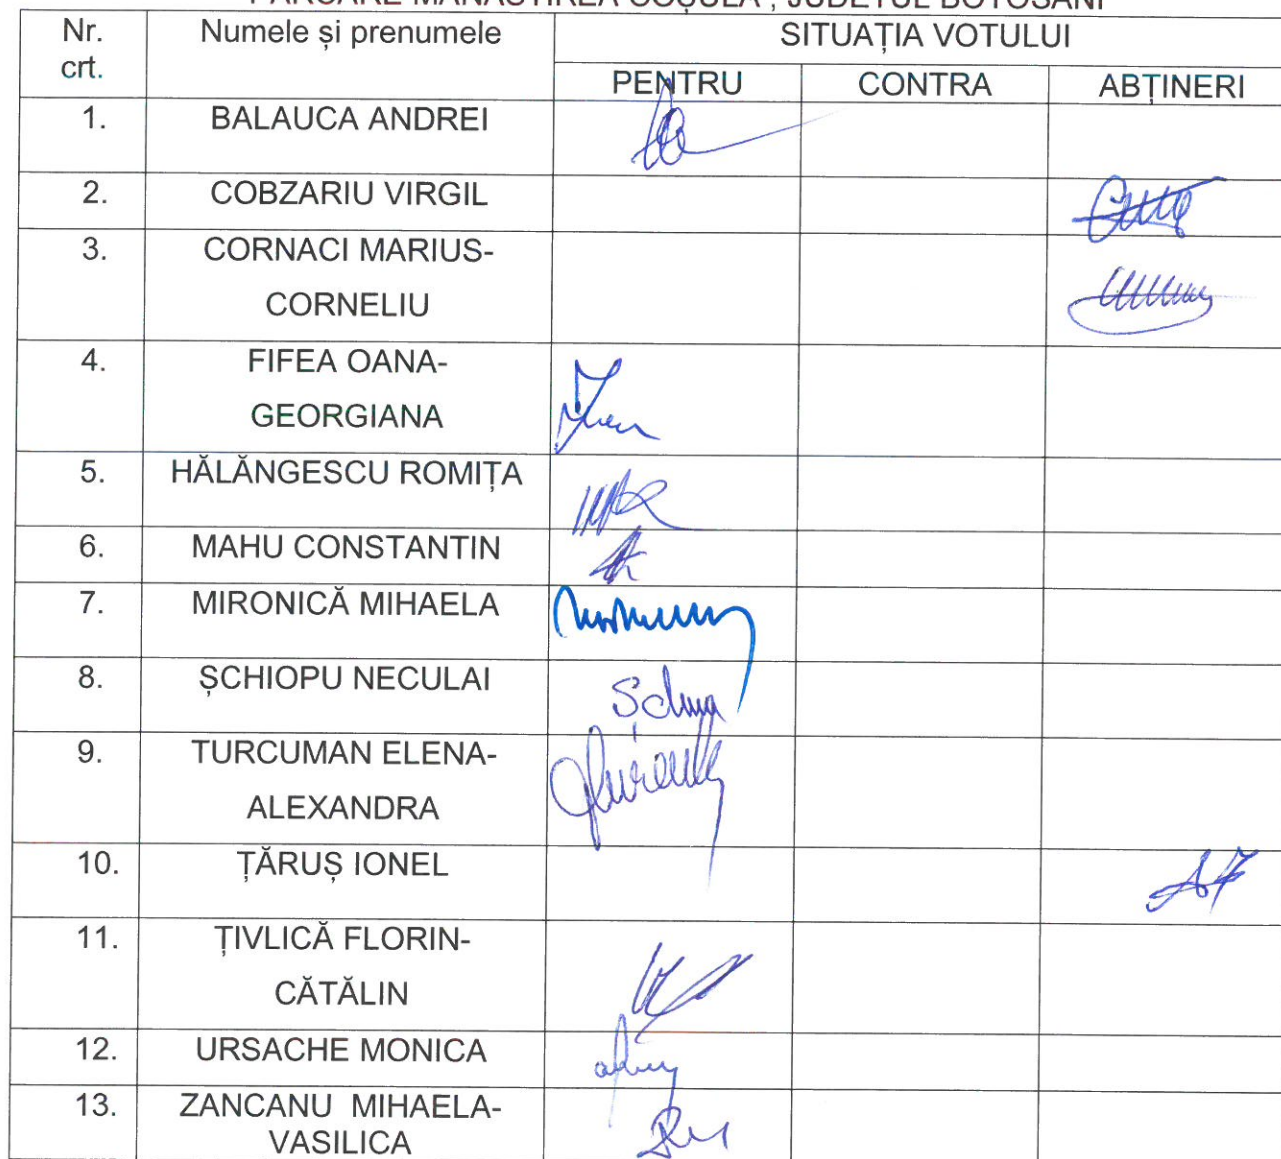 PARCARE MANASTIREA COȘULA , JUDETUL BOTOSANI
Nr. crt. Numele și prenumele SITUAȚIA VOTULUI
PENTRU CONTRA ABȚINERI
1. BALAUCA ANDREI
2. COBZARIU VIRGIL
3. CORNACI MARIUS-
CORNELIU
4. FIFEA OANA-
GEORGIANA
5. HĂLĂNGESCU ROMIȚA
6. MAHU CONSTANTIN
7. MIRONICĂ MIHAELA
8. ȘCHIOPU NECULAI
9. TURCUMAN ELENA-
ALEXANDRA
10. ȚĂRUȘ IONEL
11. ȚIVLICĂ FLORIN-
CĂTĂLIN
12. URSACHE MONICA
13. ZANCANU MIHAELA-
VASILICA